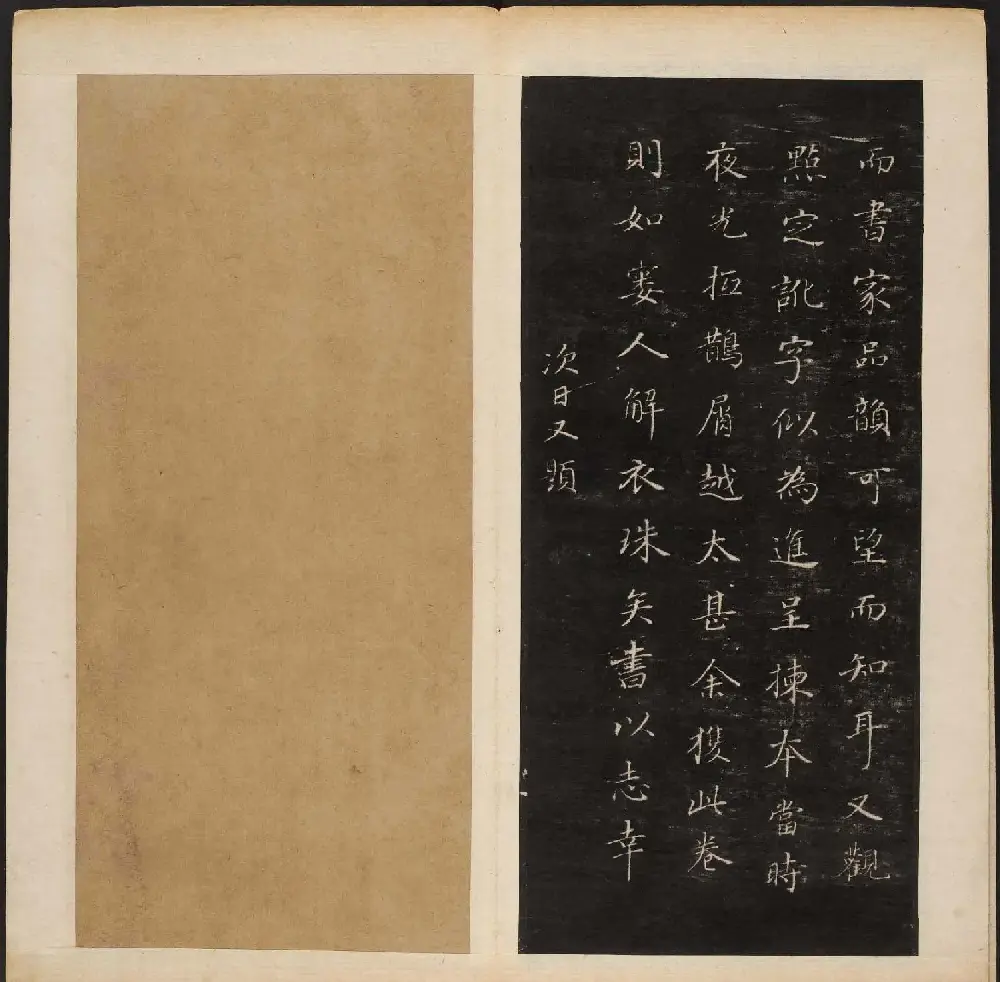 而書家品韻可望而知耳又觀
點定訛字似為進呈揀本當時
夜光抵鵲屑越太甚余獲此卷
則如窭人解衣珠矣書以志幸
次日又題